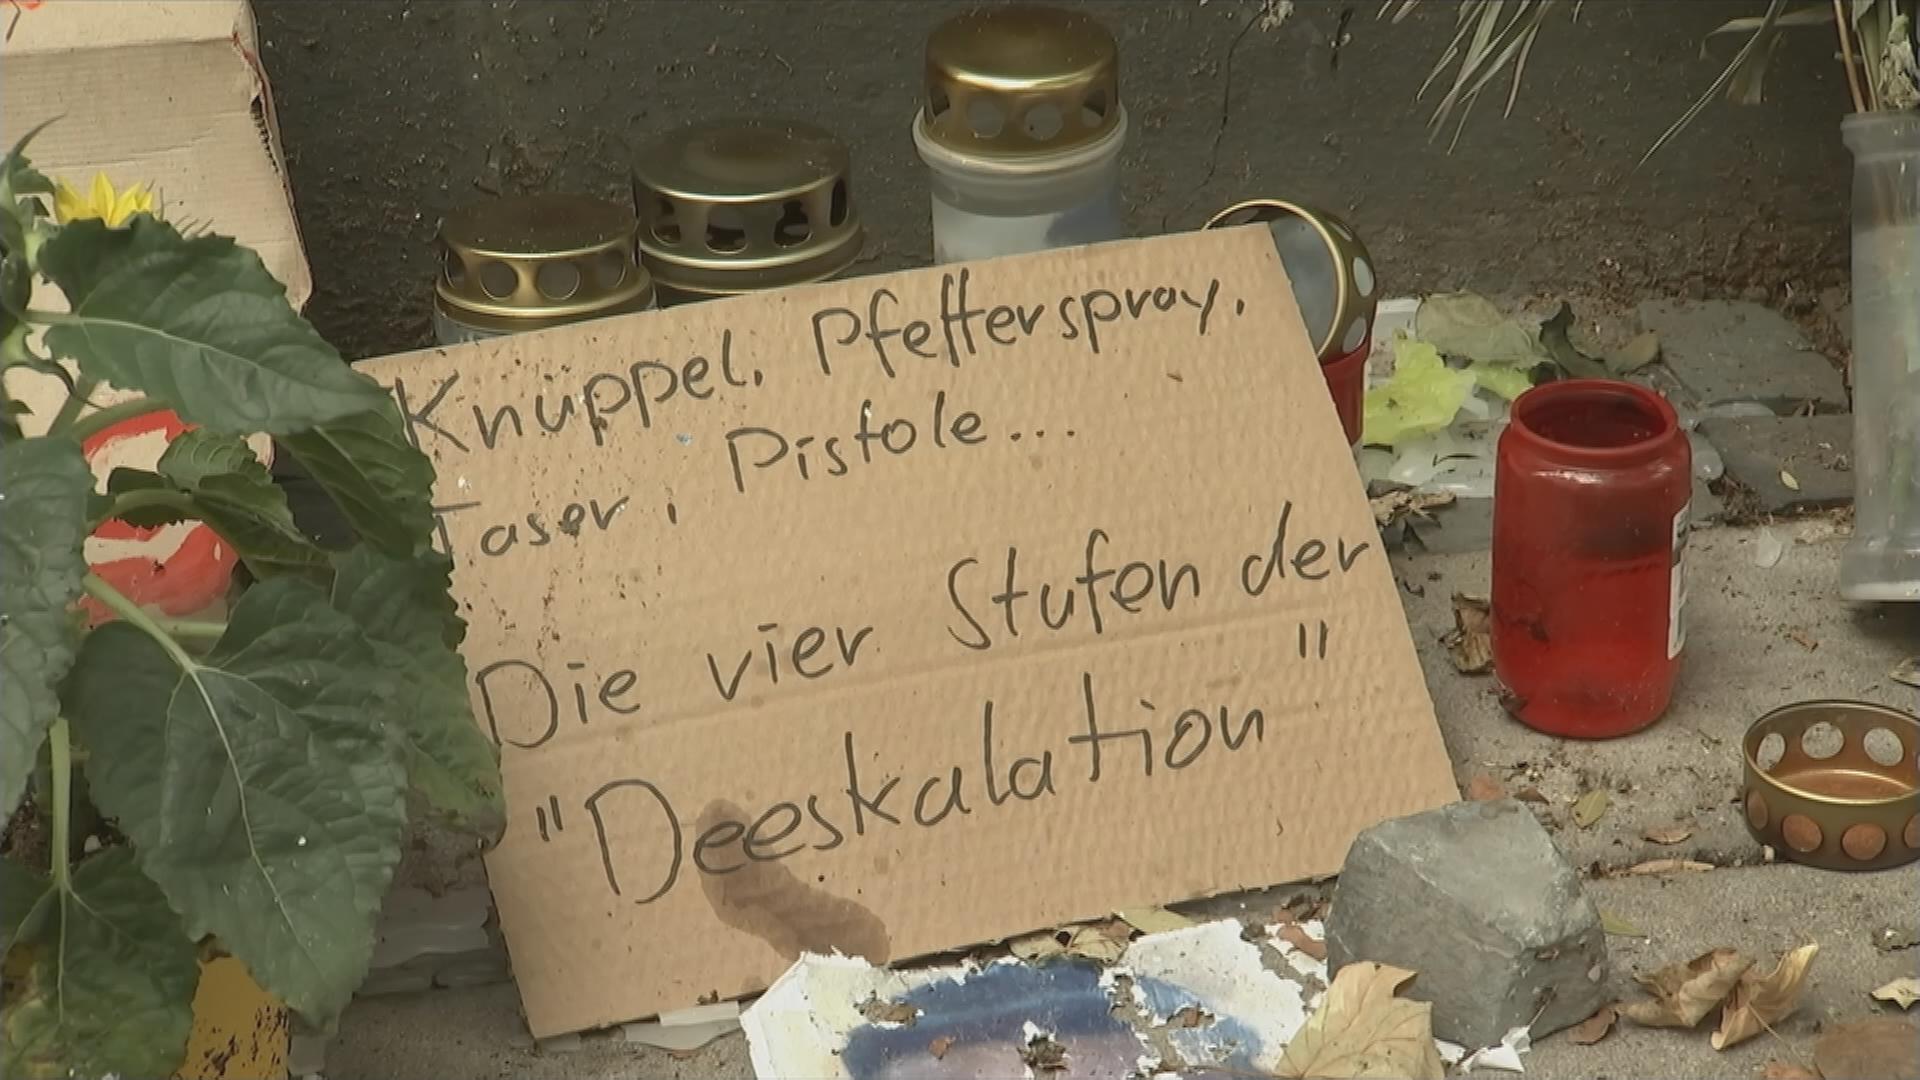 Knüppel, Pfefferspray,
Taser, Pistole...
Die vier Stufen der
"Deeskalation"